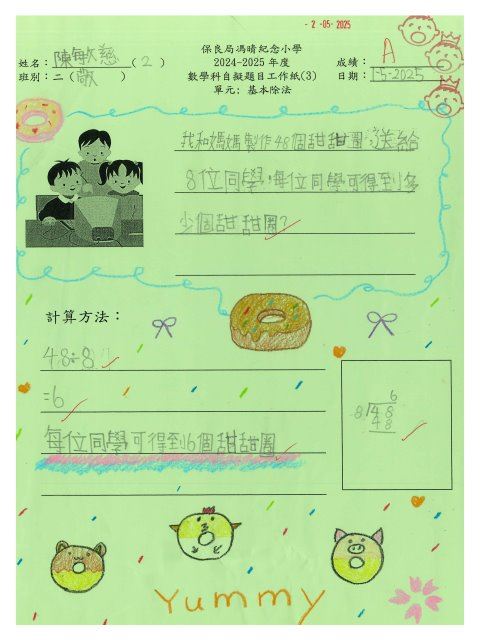 - 2 -05- 2025
保良局馮晴紀念小學
姓名：陳敏慈（2）
2024-2025 年度
成績：A
班別：二（敬）
數學科自擬題目工作紙(3)
日期：1-5-2025
單元：基本除法
我和媽媽製作48個甜甜圈送給
8位同學，每位同學可得到多
少個甜甜圈？
計算方法：
48÷8
=6
每位同學可得到6個甜甜圈
6
8√48
48
Yummy